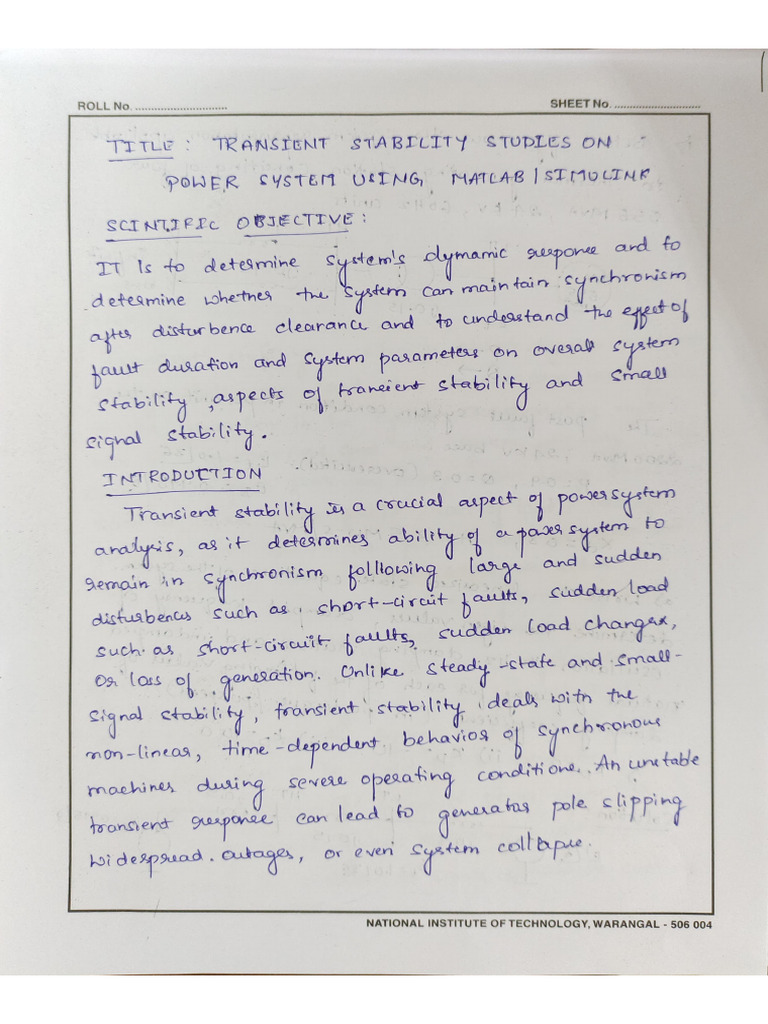 ROLL No. ............................
SHEET No. ............................
TITLE : TRANSIENT STABILITY STUDIES ON
POWER SYSTEM USING, MATLAB | SIMULINK
SCINTIFIC OBJECTIVE :
IT Is to determine system's dymamic response and to
determine whether the system can maintain synchronism
after disturbence clearance and to understand the effect of
fault duration and system parameters on overall system
stability, aspects of transient stability and small
signal stability.
INTRODUCTION
Transient stability is a crucial aspect of power system
analysis, as it determines ability of a power system to
remain in synchronism following large and sudden
disturbences such as short-circuit faults, sudden load
such as short-circuit faults, sudden load changes,
or loss of generation. Unlike steady-state and small-
signal stability, transient stability deals with the
non-linear, time-dependent behavior of synchronous
machines during severe operating conditions. An unstable
transient response can lead to generator pole slipping
widespread. outages, or even system collapse.
NATIONAL INSTITUTE OF TECHNOLOGY, WARANGAL - 506 004